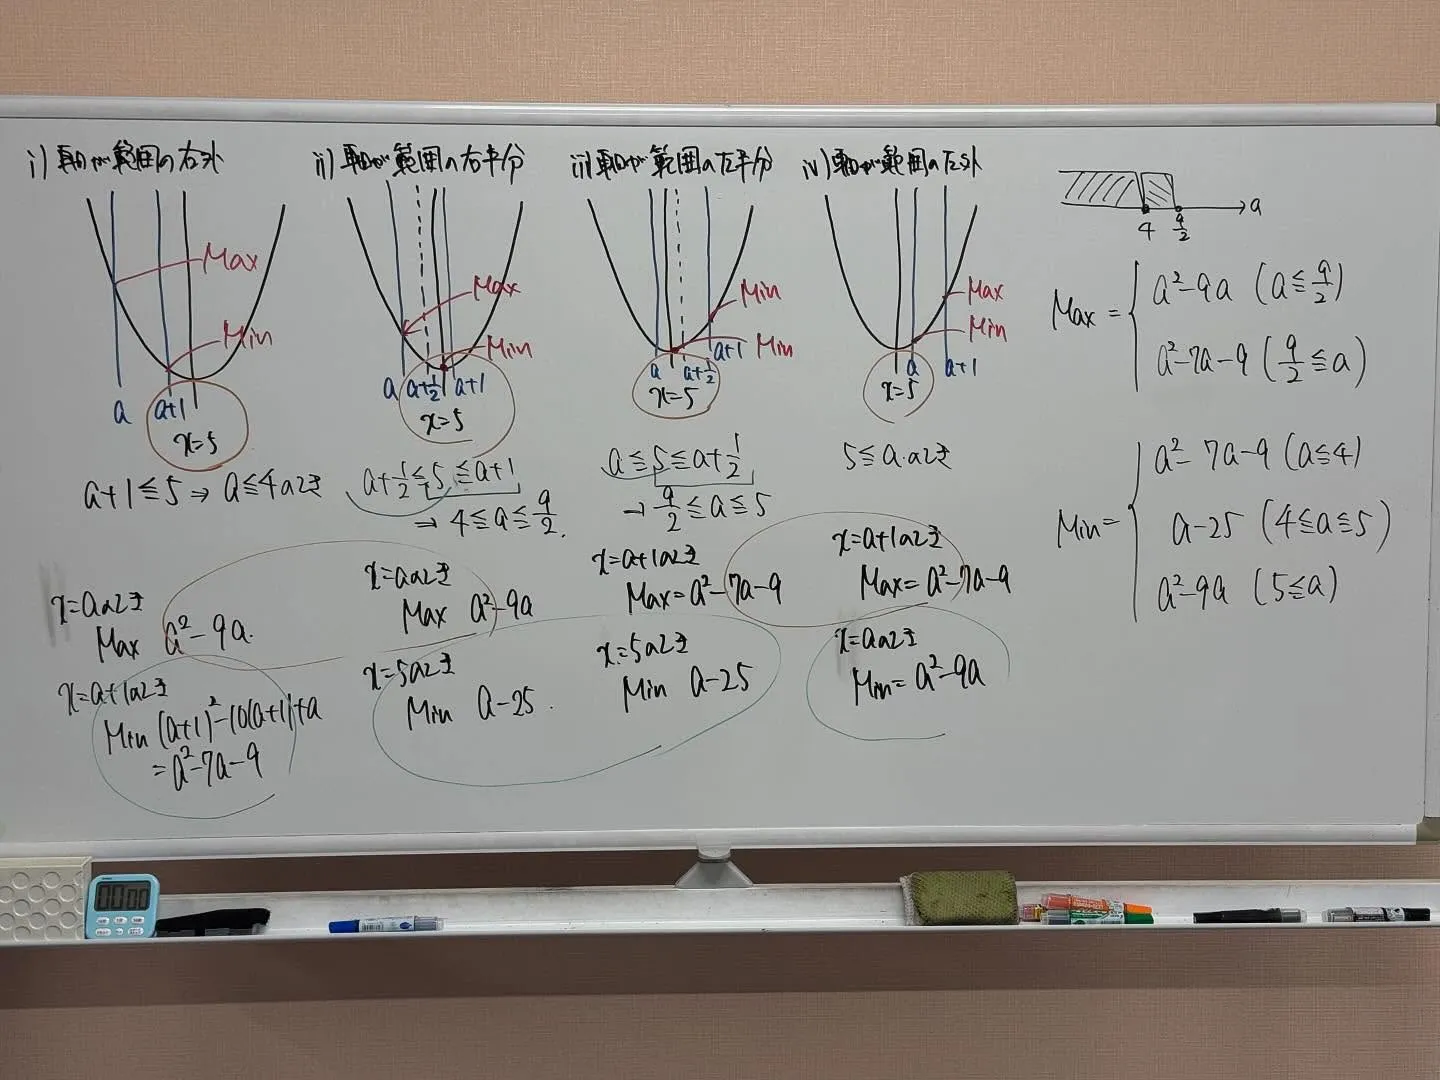 i) 軸が範囲の右外
Max
Min
a a+1
x=5
a+1≦5 ⇒ a≦4のとき
x=aのとき
Max a²-9a.
x=a+1のとき
Min (a+1)²-10(a+1)+a
=a²-7a-9
ii) 軸が範囲の右半分
Max
Min
a a+1/2 a+1
x=5
a+1/2≦5≦a+1
→ 4≦a≦9/2.
x=aのとき
Max a²-9a
x=5のとき
Min a-25.
iii) 軸が範囲の左半分
Min
Min
a a+1/2 a+1
x=5
a≦5≦a+1/2
→ 9/2≦a≦5
x=a+1のとき
Max=a²-7a-9
x=5のとき
Min a-25
iv) 軸が範囲の左外
Max
Min
a a+1
x=5
5≦a のとき
x=a+1のとき
Max=a²-7a-9
x=aのとき
Min=a²-9a
4 9/2 a
Max=
a²-9a (a≦9/2)
a²-7a-9 (9/2≦a)
Min=
a²-7a-9 (a≦4)
a-25 (4≦a≦5)
a²-9a (5≦a)